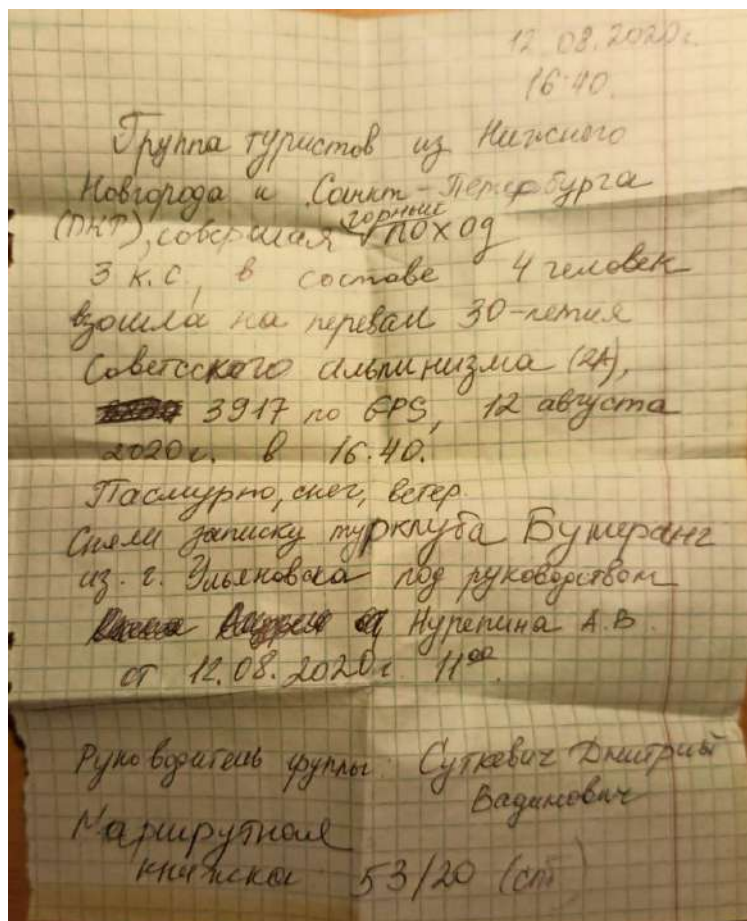 12.08.2020г.
16:40.
Группа туристов из Нижнего
Новгорода и Санкт-Петербурга
(ПКТ), совершая горный поход
3 к.с., в составе 4 человек
взошла на перевал 30-летия
Советского альпинизма (2А),
3917 по GPS, 12 августа
2020г. в 16.40.
Пасмурно, снег, ветер.
Сняли записку турклуба Бумеранг
из г. Ульяновска под руководством
Нурепина А.В.
от 12.08.2020г. 11⁰⁰.
Руководитель группы: Суткевич Дмитрий
Вадимович
Маршрутная
книжка 53/20 (ст)